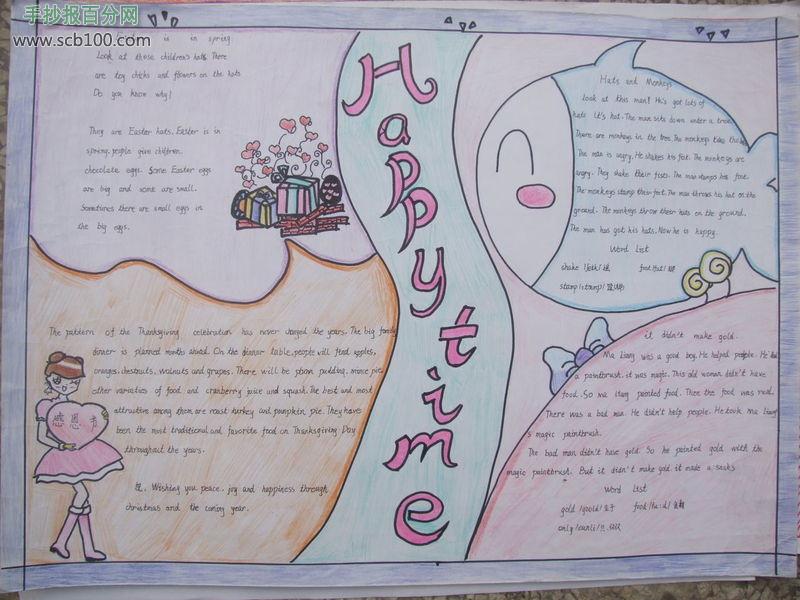 手抄报百分网
www.scb100.com
is in spring.
Look at those children's hats. There
are toy chicks and flowers on the hats
Do you know why?
They are Easter hats. Easter is in
spring. people give children
chocolate eggs. Some Easter eggs
are big and some are small.
Sometimes there are small eggs in
the big eggs.
Happy time
Hats and Monkeys
Look at this man! He's got lots of
hats It's hat. The man sits down under a tree
There are monkeys in the tree. The monkeys take the
The man is angry. He shakes his fist. The monkeys are
angry. They shake their fists. The man stamps his foot.
The monkeys stamp their foot. The man throws his hat on the
ground. The monkeys throw their hats on the ground.
The man has got his hats. Now he is happy.
Word List
shake
stamp
The pattern of the Thanksgiving celebration has never changed the years. The big family
dinner is planned months ahead. On the dinner table, people will find apples,
oranges, chestnuts, walnuts and grapes. There will be plum pudding, mince pie
other varieties of food and cranberry juice and squash. The best and most
attractive among them are roast turkey and pumpkin pie. They have
been the most traditional and favorite food on Thanksgiving Day
throughout the years.
Wishing you peace, joy and happiness through
christmas and the coming year.
感恩节
it didn't make gold.
Ma Liang was a good boy. He helped people. He had
a paintbrush. it was magic. This old woman didn't have
food. So Ma Liang painted food. Then the food was real.
There was a bad man. He didn't help people. He took Ma Liang
's magic paintbrush.
The bad man didn't have gold. So he painted gold with the
magic paintbrush. But it didn't make gold. it made a snake
Word List
gold
food
only